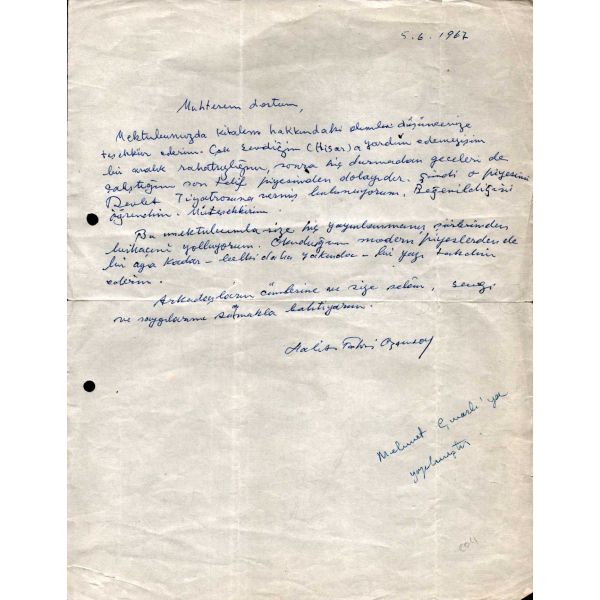 5.6.1967
Muhterem dostum,
Mektubunuzda kitabım hakkındaki olumlu düşüncenize
teşekkür ederim. Çok sevdiğim (Hisar)a yardım edemeyişim
bir aralık rahatsızlığım, sonra hiç durmadan geceleri de
çalıştığım son telif piyesimden dolayıdır. Şimdi o piyesimi
Devlet Tiyatrosuna vermiş bulunuyorum. Beğenildiğini
öğrendim. Müteşekkirim.
Bu mektubumla size hiç yayınlanmamış şiirlerimden
birkaçını yolluyorum. Okuduğum modern piyeslerden de
bir aya kadar - belki daha yakında - bir yazı takdim
ederim.
Arkadaşların cümlesine ve size selâm, sevgi
ve saygılarımı sunmakla bahtiyarım.
Halit Fahri Ozansoy
Mehmet Çınarlı'ya
yazılmıştır.